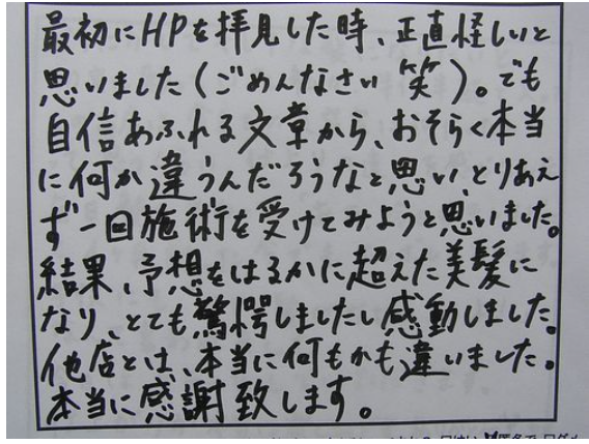 最初にHPを拝見した時、正直怪しいと
思いました(ごめんなさい 笑)。でも
自信あふれる文章から、おそらく本当
に何か違うんだろうなと思い、とりあえ
ず一回施術を受けてみようと思いました。
結果、予想をはるかに超えた美髪に
なり、とても驚愕しましたし感動しました。
他店とは、本当に何もかも違いました。
本当に感謝致します。